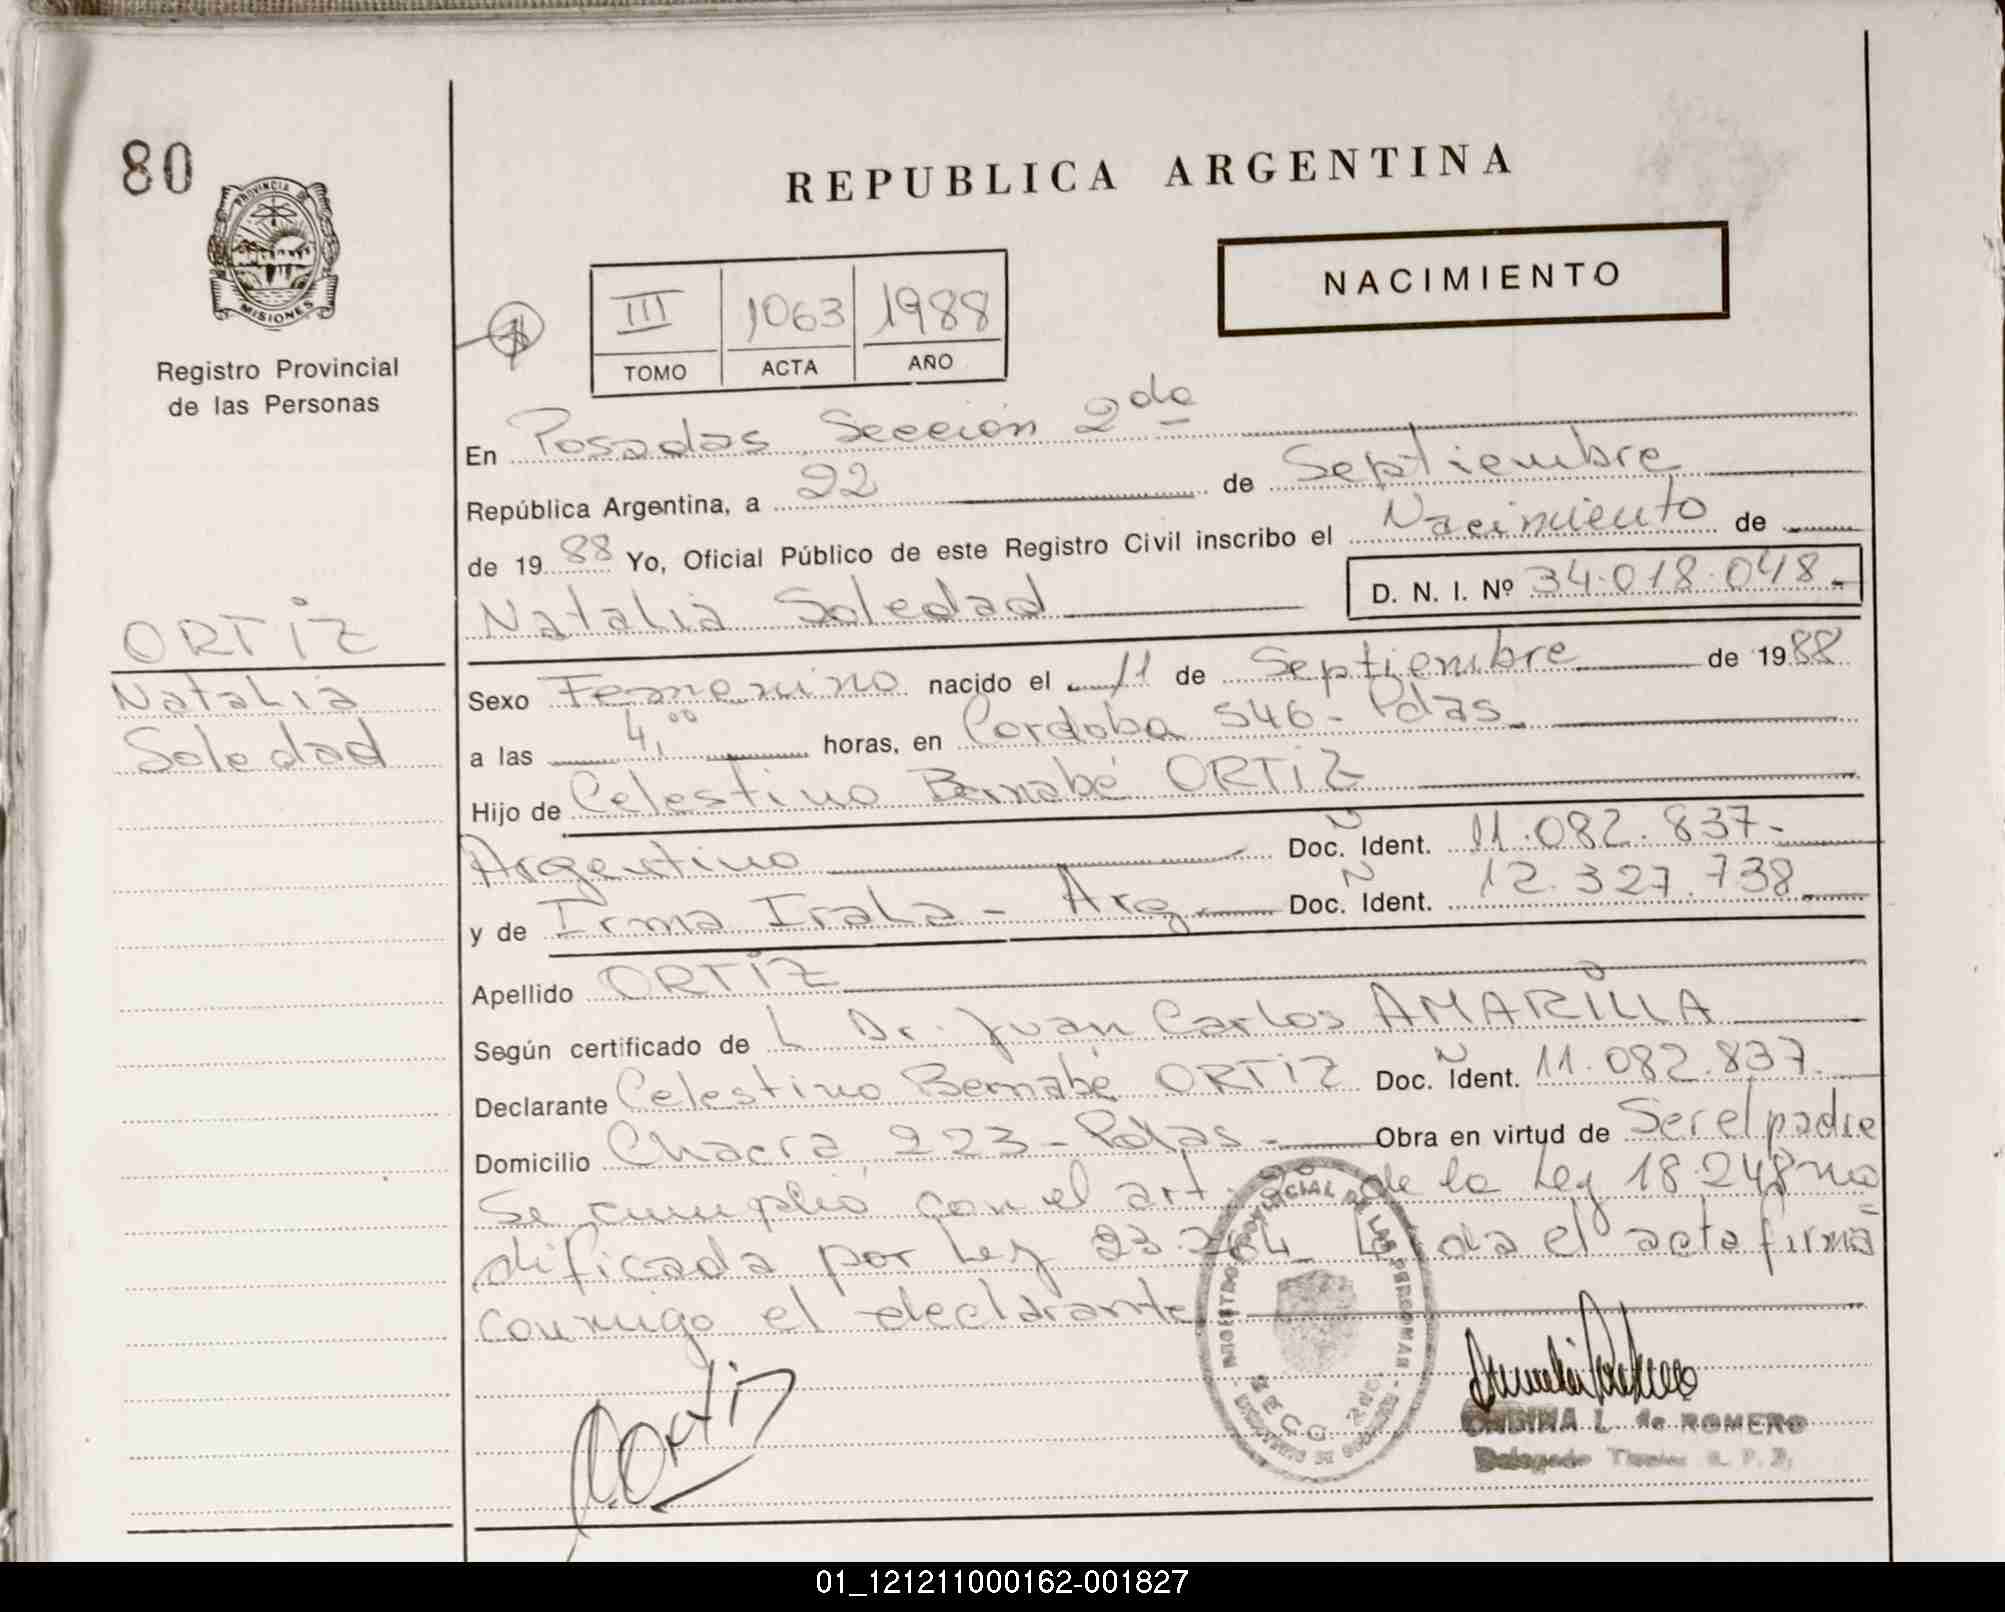 80
PROVINCIA DE
MISIONES
Registro Provincial
de las Personas
ORTIZ
Natalia
Soledad
REPUBLICA ARGENTINA
NACIMIENTO
III 1063 1988
TOMO ACTA AÑO
En Posadas Sección 2da
República Argentina, a 22 de Septiembre
de 1988 Yo, Oficial Público de este Registro Civil inscribo el Nacimiento de
Natalia Soledad D. N. I. Nº 34.018.048.-
Sexo Femenino nacido el 11 de Septiembre de 1988
a las 4,00 horas, en Cordoba 546 - Pdas.
Hijo de Celestino Bernabé ORTIZ
Argentino Doc. Ident. 11.082.837.-
y de Irma Irala - Arg. Doc. Ident. 12.327.738
Apellido ORTIZ
Según certificado de L Dr. Juan Carlos AMARILLA
Declarante Celestino Bernabé ORTIZ Doc. Ident. 11.082.837.
Domicilio Chacra 223 - Pdas. - Obra en virtud de Ser el padre
Se cumplió con el art. de la Ley 18.248 mo
dificada por Ley 23.264 Leida el acta firma
conmigo el declarante
C. Ortiz
L. de ROMERO
Delegado Titular R. P. P.
01_121211000162-001827